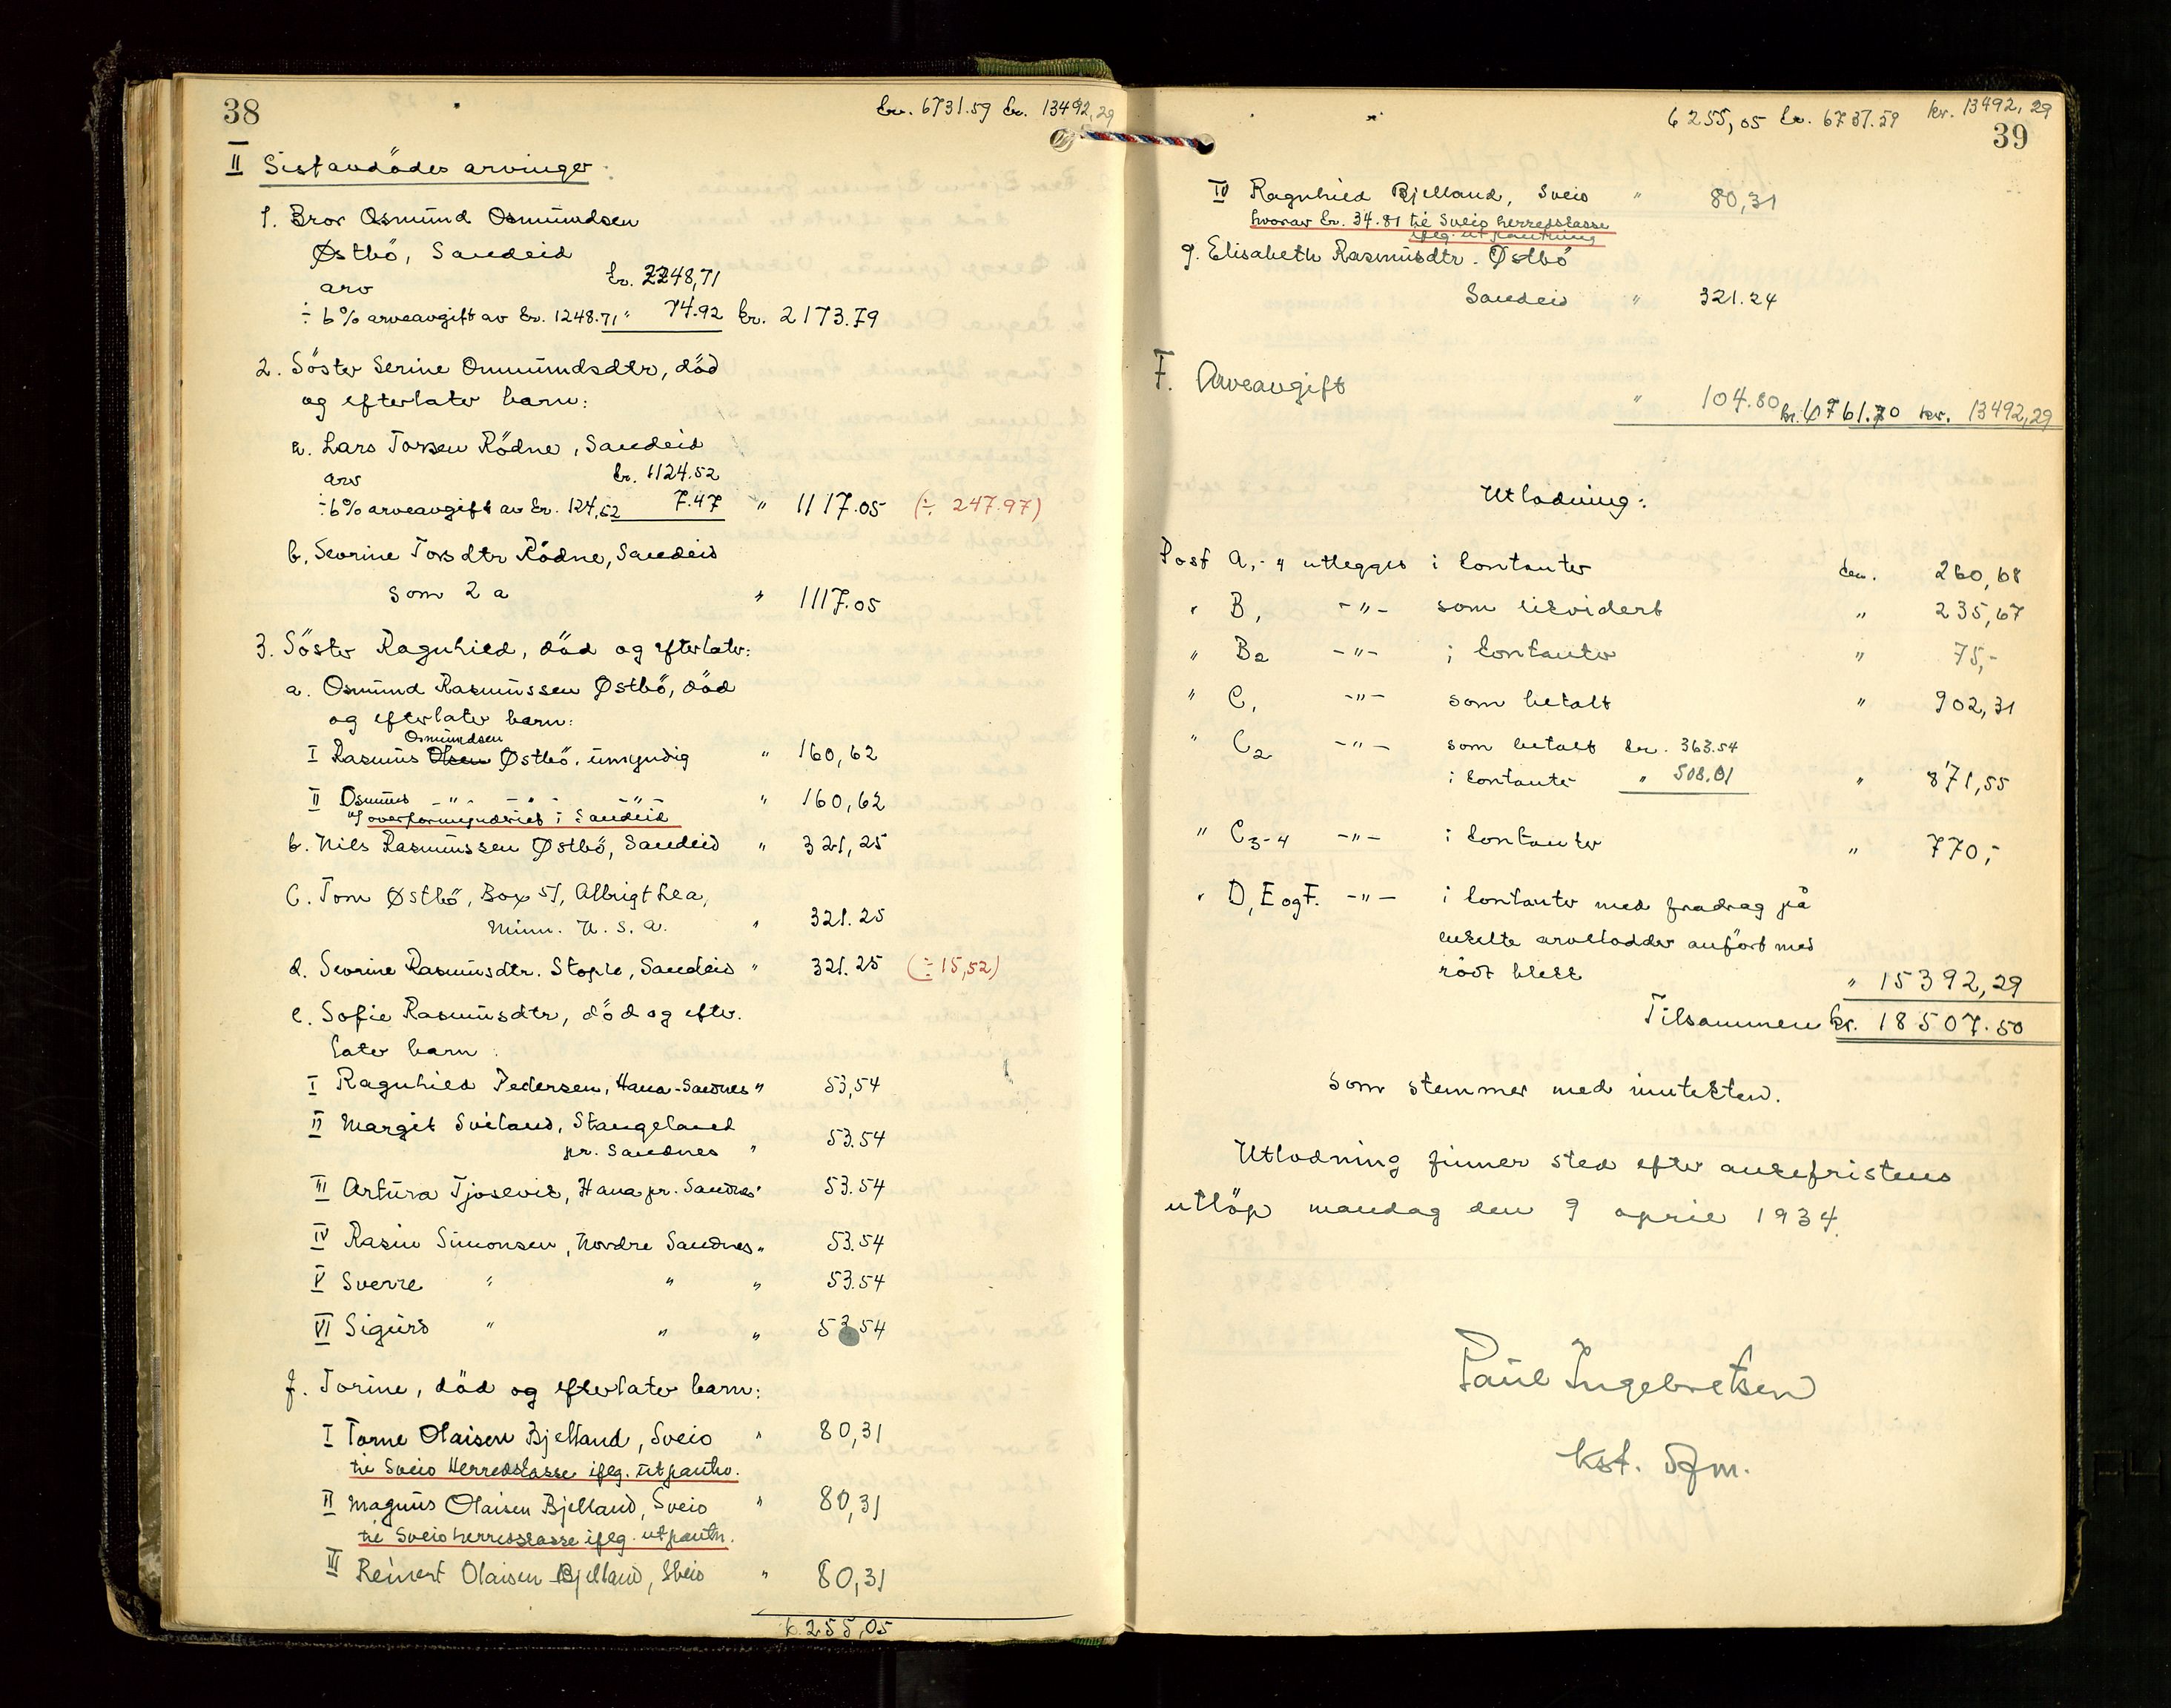 38
kr. 6731.59 kr. 13492,29
II Sistavdödes arvinger:
1. Bror Osmund Osmundsen
Østbö, Sandeid
arv kr. 2248,71
÷ 6% arveavgift av kr. 1248.71 " 74.92 kr. 2173.79
2. Söster Serine Ommundsdtr, död
og efterlater barn:
a. Lars Torsen Rödne, Sandeid
arv kr. 1124.52
÷ 6% arveavgift av kr. 124,52 7.47 " 1117.05 (÷ 247.97)
b. Sevrine Torsdtr Rödne, Sandeid
som 2 a " 1117.05
3. Söster Ragnhild, död og efterlater:
a. Osmund Rasmussen Østbö, död
og efterlater barn:
Osmundsen
I Rasmus Olsen Østbö, umyndig " 160,62
II Osmund -"- -"- -"- " 160,62
overformynderiet i Sandeid
b. Nils Rasmussen Østbö, Sandeid " 321,25
c. Tom Østbö, Box 51, Albrigt Lea,
Minn. U.S.A. " 321.25
d. Sevrine Rasmusdtr. Stople, Sandeid " 321.25 (÷ 15,52)
e. Sofie Rasmusdtr, död og efter-
later barn:
I Ragnhild Pedersen, Hana-Sandnes " 53,54
II Margit Sviland, Stangeland
pr. Sandnes " 53.54
III Artura Tjosevik, Hana pr. Sandnes " 53.54
IV Rasin Simonsen, Nordre Sandnes " 53.54
V Sverre " " " 53.54
VI Sigurd " " " 53.54
f. Torine, död og efterlater barn:
I Torne Olaisen Bjelland, Sveio " 80,31
til Sveio Herredskasse ifög. utpantn.
II Magnus Olaisen Bjelland, Sveio " 80,31
til Sveio herredskasse ifög. utpantn.
III Reinert Olaisen Bjelland, Sveio " 80,31
6255,05
6255,05 kr. 6737.59 kr. 13492,29
39
IV Ragnhild Bjelland, Sveio " 80,31
hvorav kr. 34.81 til Sveio herredskasse
ifög. utpantning
g. Elisabeth Rasmusdtr. Østbö
Sandeid " 321.24
F. Arveavgift " 104.80 kr. 6761.70 kr. 13492,29
Utlodning:
Post A, -"- utlegges i kontanter kr. 260,68
" B, -"- som likvidert " 235,67
" B2 -"- i kontanter " 75,-
" C, -"- som betalt " 902,31
" C2 -"- som betalt kr. 363.54
i kontanter " 508.01 " 871,55
" C3-4 -"- i kontanter " 770,-
" D, E og F. -"- i kontanter med fradrag på
enkelte arvelodder anfört med
rödt blekk " 15392,29
Tilsammen kr. 18507.50
som stemmer med inntekten.
Utlodning finner sted efter ankefristens
utlöp mandag den 9 april 1934.
Paul Ingebretsen
kst. Sfm.